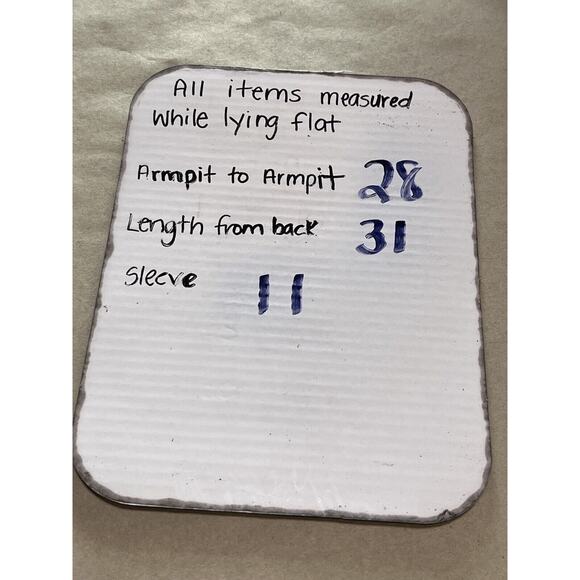 All items measured
while lying flat
Armpit to Armpit 28
Length from back 31
Sleeve 11